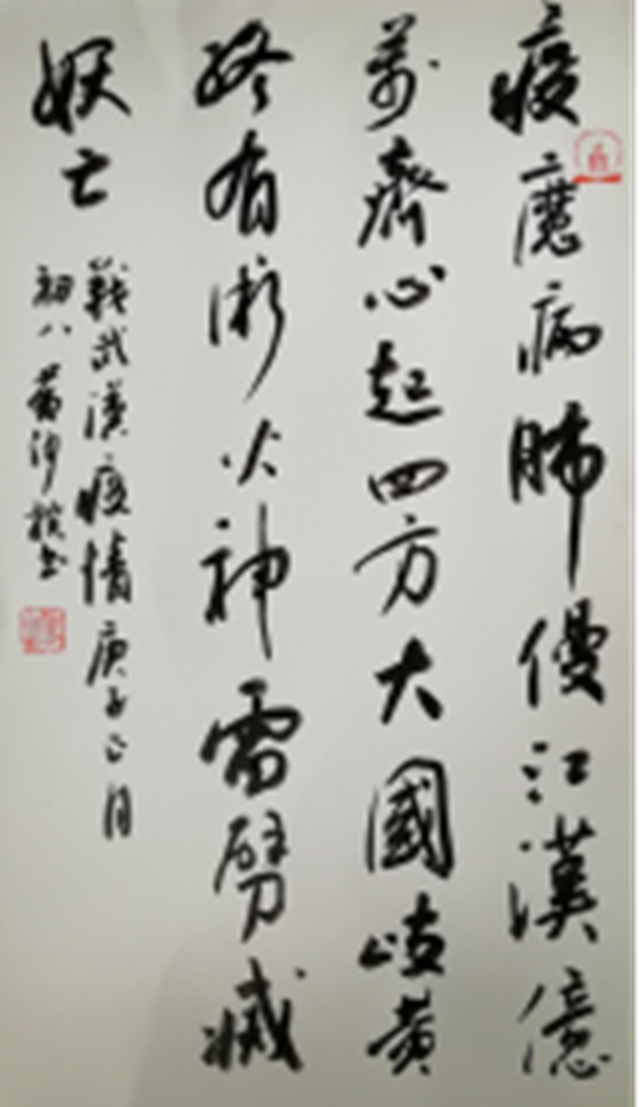 疫魔病肺侵江漢億
萬齊心起四方大國岐黄
終有術火神雷劈滅
妖亡
戰武漢疫情庚子正月
初八黄沙書